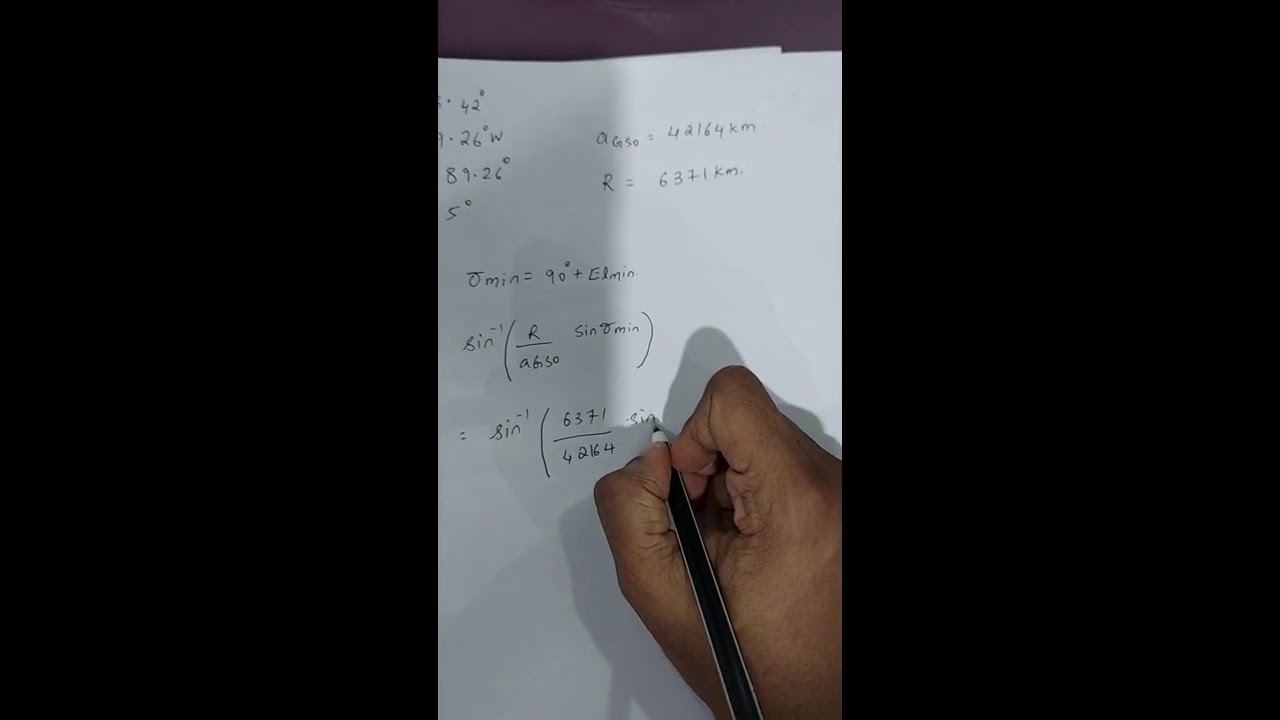 42°
26°W
89.26°
5°
aGSO = 42164 km.
R = 6371 km.
σmin = 90° + Elmin.
sin⁻¹ ( R / aGSO sin σmin )
= sin⁻¹ ( 6371 / 42164 sin